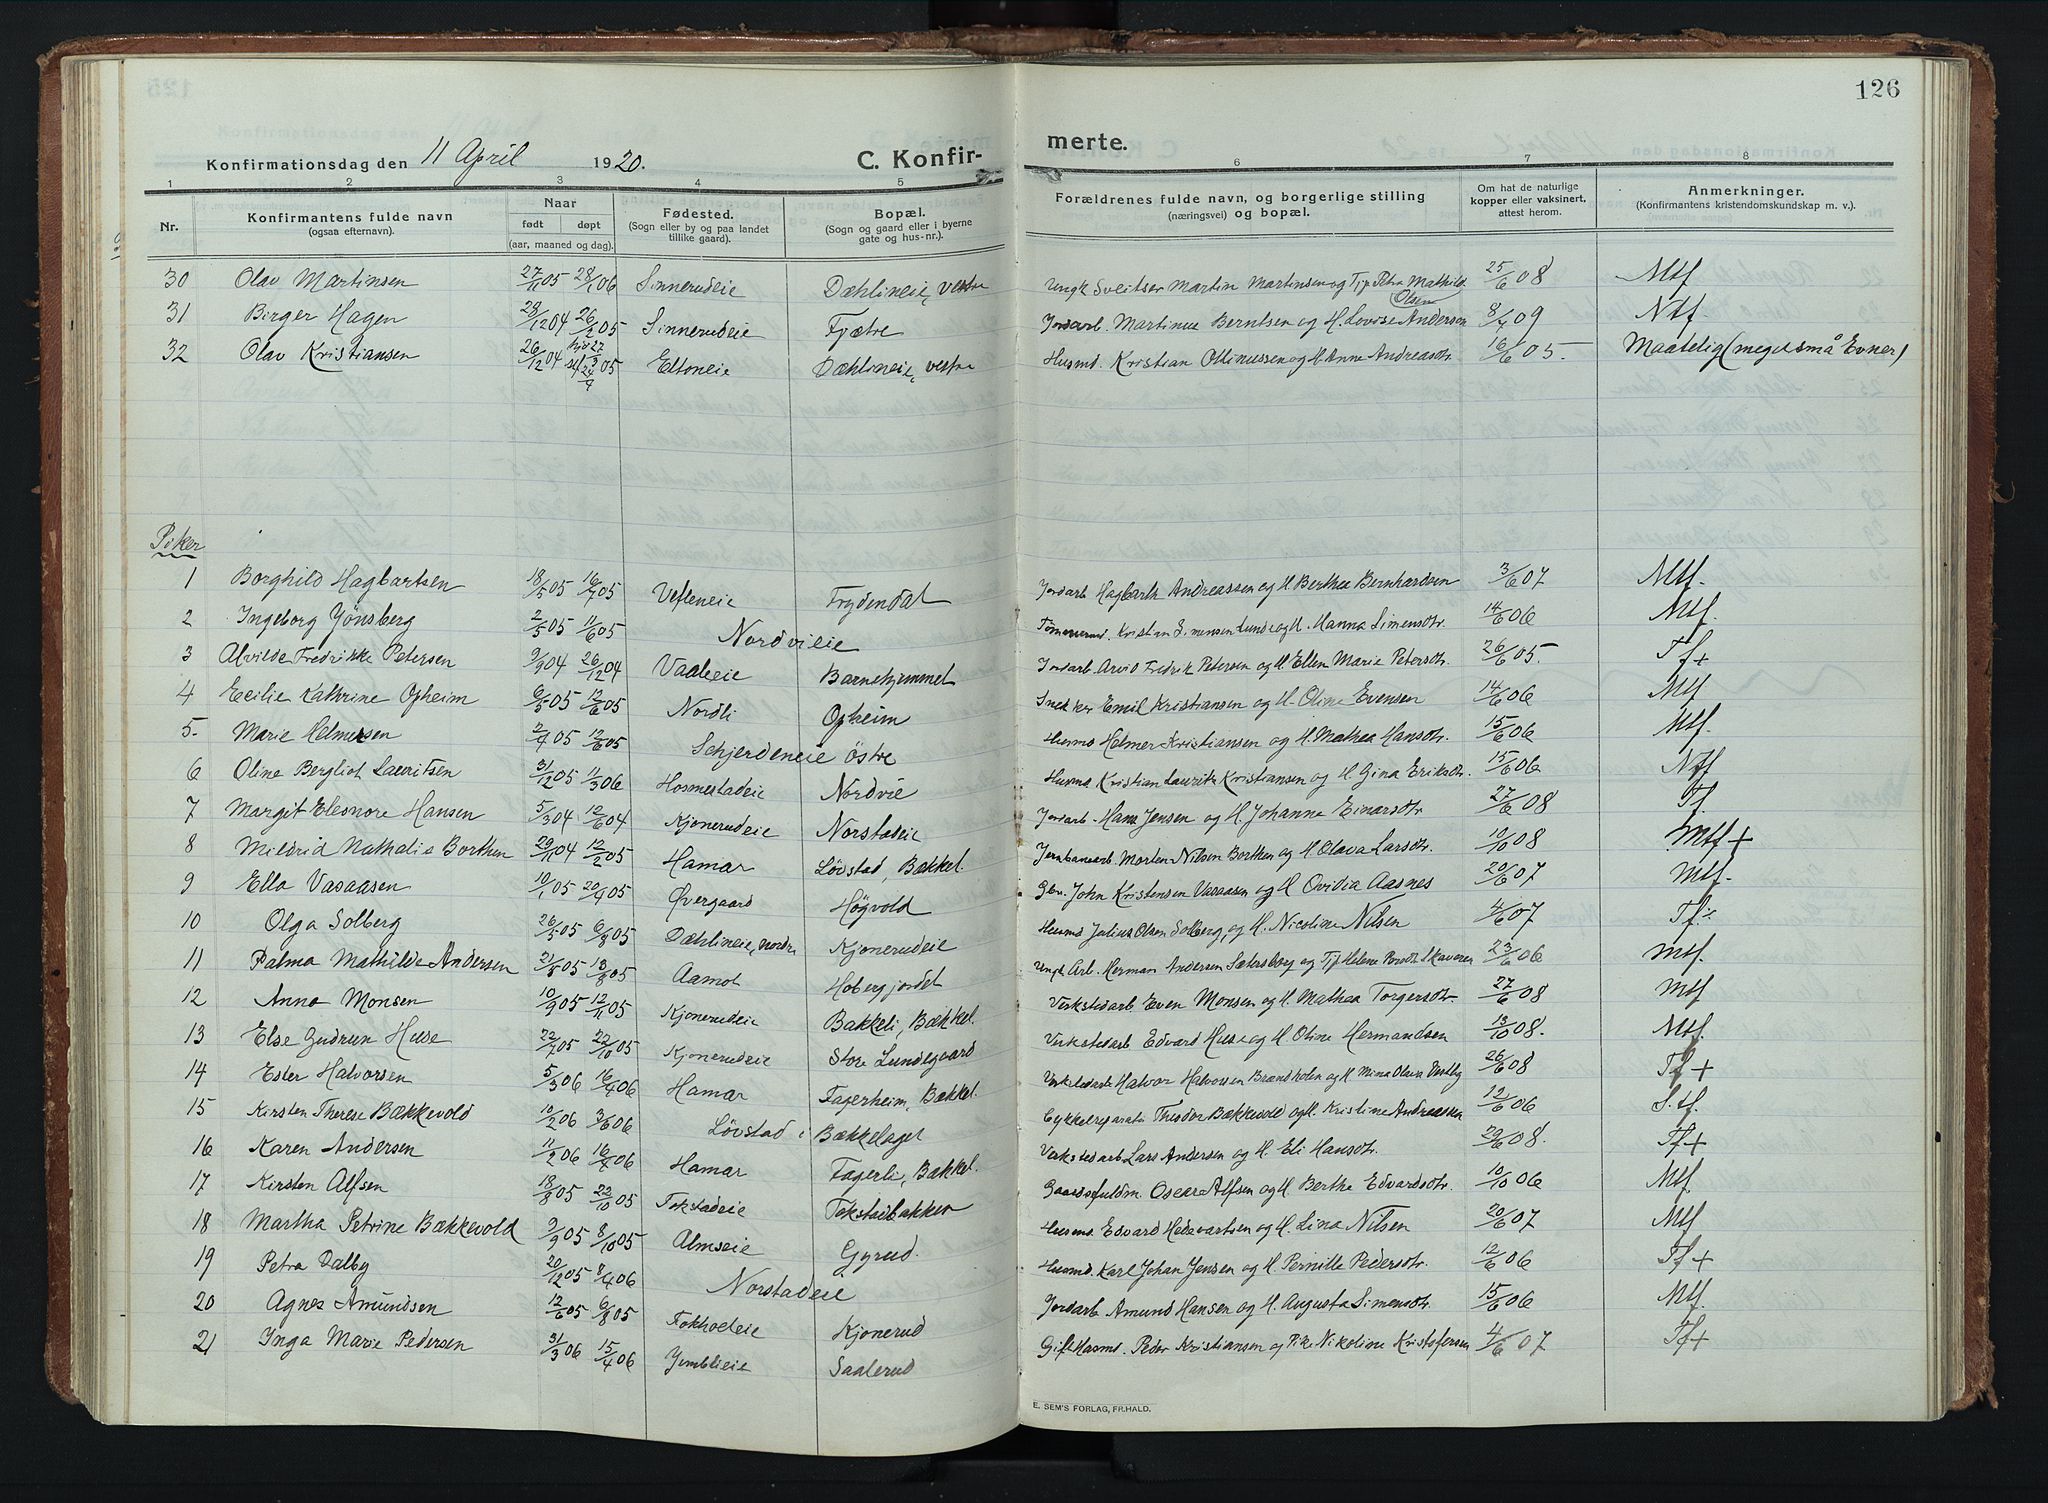 126
Konfirmationsdag den 11 April 1920.
C. Konfir-
merte.
1 2 3 4 5 6 7 8
Nr. Konfirmantens fulde navn (ogsaa efternavn). Naar født døpt (aar, maaned og dag). Fødested. (Sogn eller by og paa landet tillike gaard). Bopæl. (Sogn og gaard eller i byerne gate og hus-nr.). Forældrenes fulde navn, og borgerlige stilling (næringsvei) og bopæl. Om hat de naturlige kopper eller vaksinert, attest herom. Anmerkninger. (Konfirmantens kristendomskundskap m. v.).
30 Olav Martinsen 27/11 05 28/1 06 Sinnerudeie Dæhlineie, vestre Ungk Sveitser Martin Martinsen og Pike Petra Mathild. Olsen 25/6 08 Mtf.
31 Birger Hagen 28/12 04 26/3 05 Sinnerudeie Fjætre Jordarb. Martinus Berntsen og H. Lovise Andersen 8/7 09 Ntf.
32 Olav Kristiansen 26/12 04 05 Eltoneie Dæhlineie, vestre Husmd. Kristian Ottinussen og H. Anne Andreasdtr. 16/6 05. Maatelig (meget små Evner)
Piker
1 Borghild Hagbartsen 18/5 05 16/7 05 Vefleneie Frydendal Jordarb Hagbarth Andreassen og H. Berthea Bernhardsen 3/6 07 Mtf.
2 Ingeborg Yönsberg 2/5 05 11/6 05 Nordvieie Tømmermd. Kristian Simensen Lunde og H. Hanna Simensdtr. 14/6 06 Mtf.
3 Alvilde Fredrikke Petersen 9/9 04 26/12 04 Vaaleeie Barnehjemmet Jordarb Arvid Fredrik Petersen og H. Ellen Marie Petersdtr. 26/6 05. Tf+
4 Ecilie Kathrine Opheim 6/5 05 12/6 05 Nordli Opheim Snekker Emil Kristiansen og H. Oline Evensen 14/6 06 Mtf.
5. Marie Helmersen 2/4 05 12/6 05 Schjerdeneie östre Husmd Helmer Kristiansen og H. Mathea Hansdtr. 15/6 06 Mtf.
6 Oline Bergliot Lauritsen 31/12 05 11/3 06 Hosmestadeie Nordvie Husmd. Kristian Laurits Kristiansen og H. Gina Eriksdtr. 15/6 06 Ntf
7 Margit Eleonore Hansen 5/3 04 12/6 04 Kjonerudeie Norstadeie Jordarb. Hans Jensen og H. Johanne Einarsdtr 27/6 08 Tf.
8 Mildrid Nathalie Borthen 29/11 04 12/2 05 Hamar Løvstad, Bækkel. Jernbanearb. Morten Nilsen Borthen og H. Olava Larsdtr. 10/10 08 Mtf +
9 Ella Vasaasen 10/1 05 20/4 05 Øvergaard Högvold Gbr. John Kristensen Vasaasen og H. Ovidia Aasnes 20/6 07 Mtf.
10 Olga Solberg 26/5 05 6/8 05 Dæhlineie, nordr. Kjonerudeie Husmd Julius Olsen Solberg, og H. Nicoline Nilsen 4/6 07 Tf÷
11 Palma Mathilde Andersen 21/5 05 13/8 05 Aamot Hobergjordet Ungk. Arb. Herman Andersen Sætersberg og Pike Helene Skaveren 23/6 06 Mtf.
12 Anna Monsen 10/9 05 12/11 05 Kjonerudeie Bakkeli, Bækkel. Verkstedarb. Even Monsen og H. Mathea Torgersdtr. 27/6 08 Mtf
13 Else Gudrun Huse 22/7 05 22/10 05 Kjonerudeie Store Lundegaard Verkstedarb Edvard Huse og H. Oline Hermandsen 13/10 08. Mtf.
14 Ester Halvorsen 5/3 06 16/4 06 Hamar Fagerheim, Bækkel. Verkstedarb Halvor Halvorsen Brændholen og H. Mina Olsen Vestby 26/6 08 Tf +
15 Kirsten Therese Bækkevold 10/2 06 3/6 06 Løvstad i Bækkelaget Cykkelreparatør Theodor Bækkevold og H. Kristine Andreassen 12/6 06 S.tf.
16 Karen Andersen 11/2 06 16/4 06 Hamar Fagerli, Bækkel. Verkstedarb Lars Andersen og H. Eli Hansdtr. 29/6 08. Tf+
17 Kirsten Alfsen 18/8 05 22/10 05 Tokstadeie Tokstadbakken Gaardsfuldm. Oscar Alfsen og H. Berthe Edvardsdtr. 10/10 06 Mtf.
18 Martha Petrine Bækkevold 9/9 05 8/10 05 Almseie Gyrud. Husmd. Edvard Hedevartsen og H. Lina Nilsen 20/6 07 Mtf.
19 Petra Dalby 20/12 05 8/4 06 Norstadeie Husmd. Karl Johan Jensen og H. Pernille Pedersdtr. 12/6 06 Tf +
20 Agnes Amundsen 12/6 05 6/8 05 Fokholeie Kjonerud Jordarb Amund Hansen og H. Augusta Simensdtr. 15/6 06 Mtf.
21 Inga Marie Pedersen 31/3 06 15/4 06 Jemblieie Saalerud Gift Husmd. Peder Kristiansen og Pike Nikoline Kristofersen 4/6 07 Tf+
E. SEM'S FORLAG, FR.HALD.